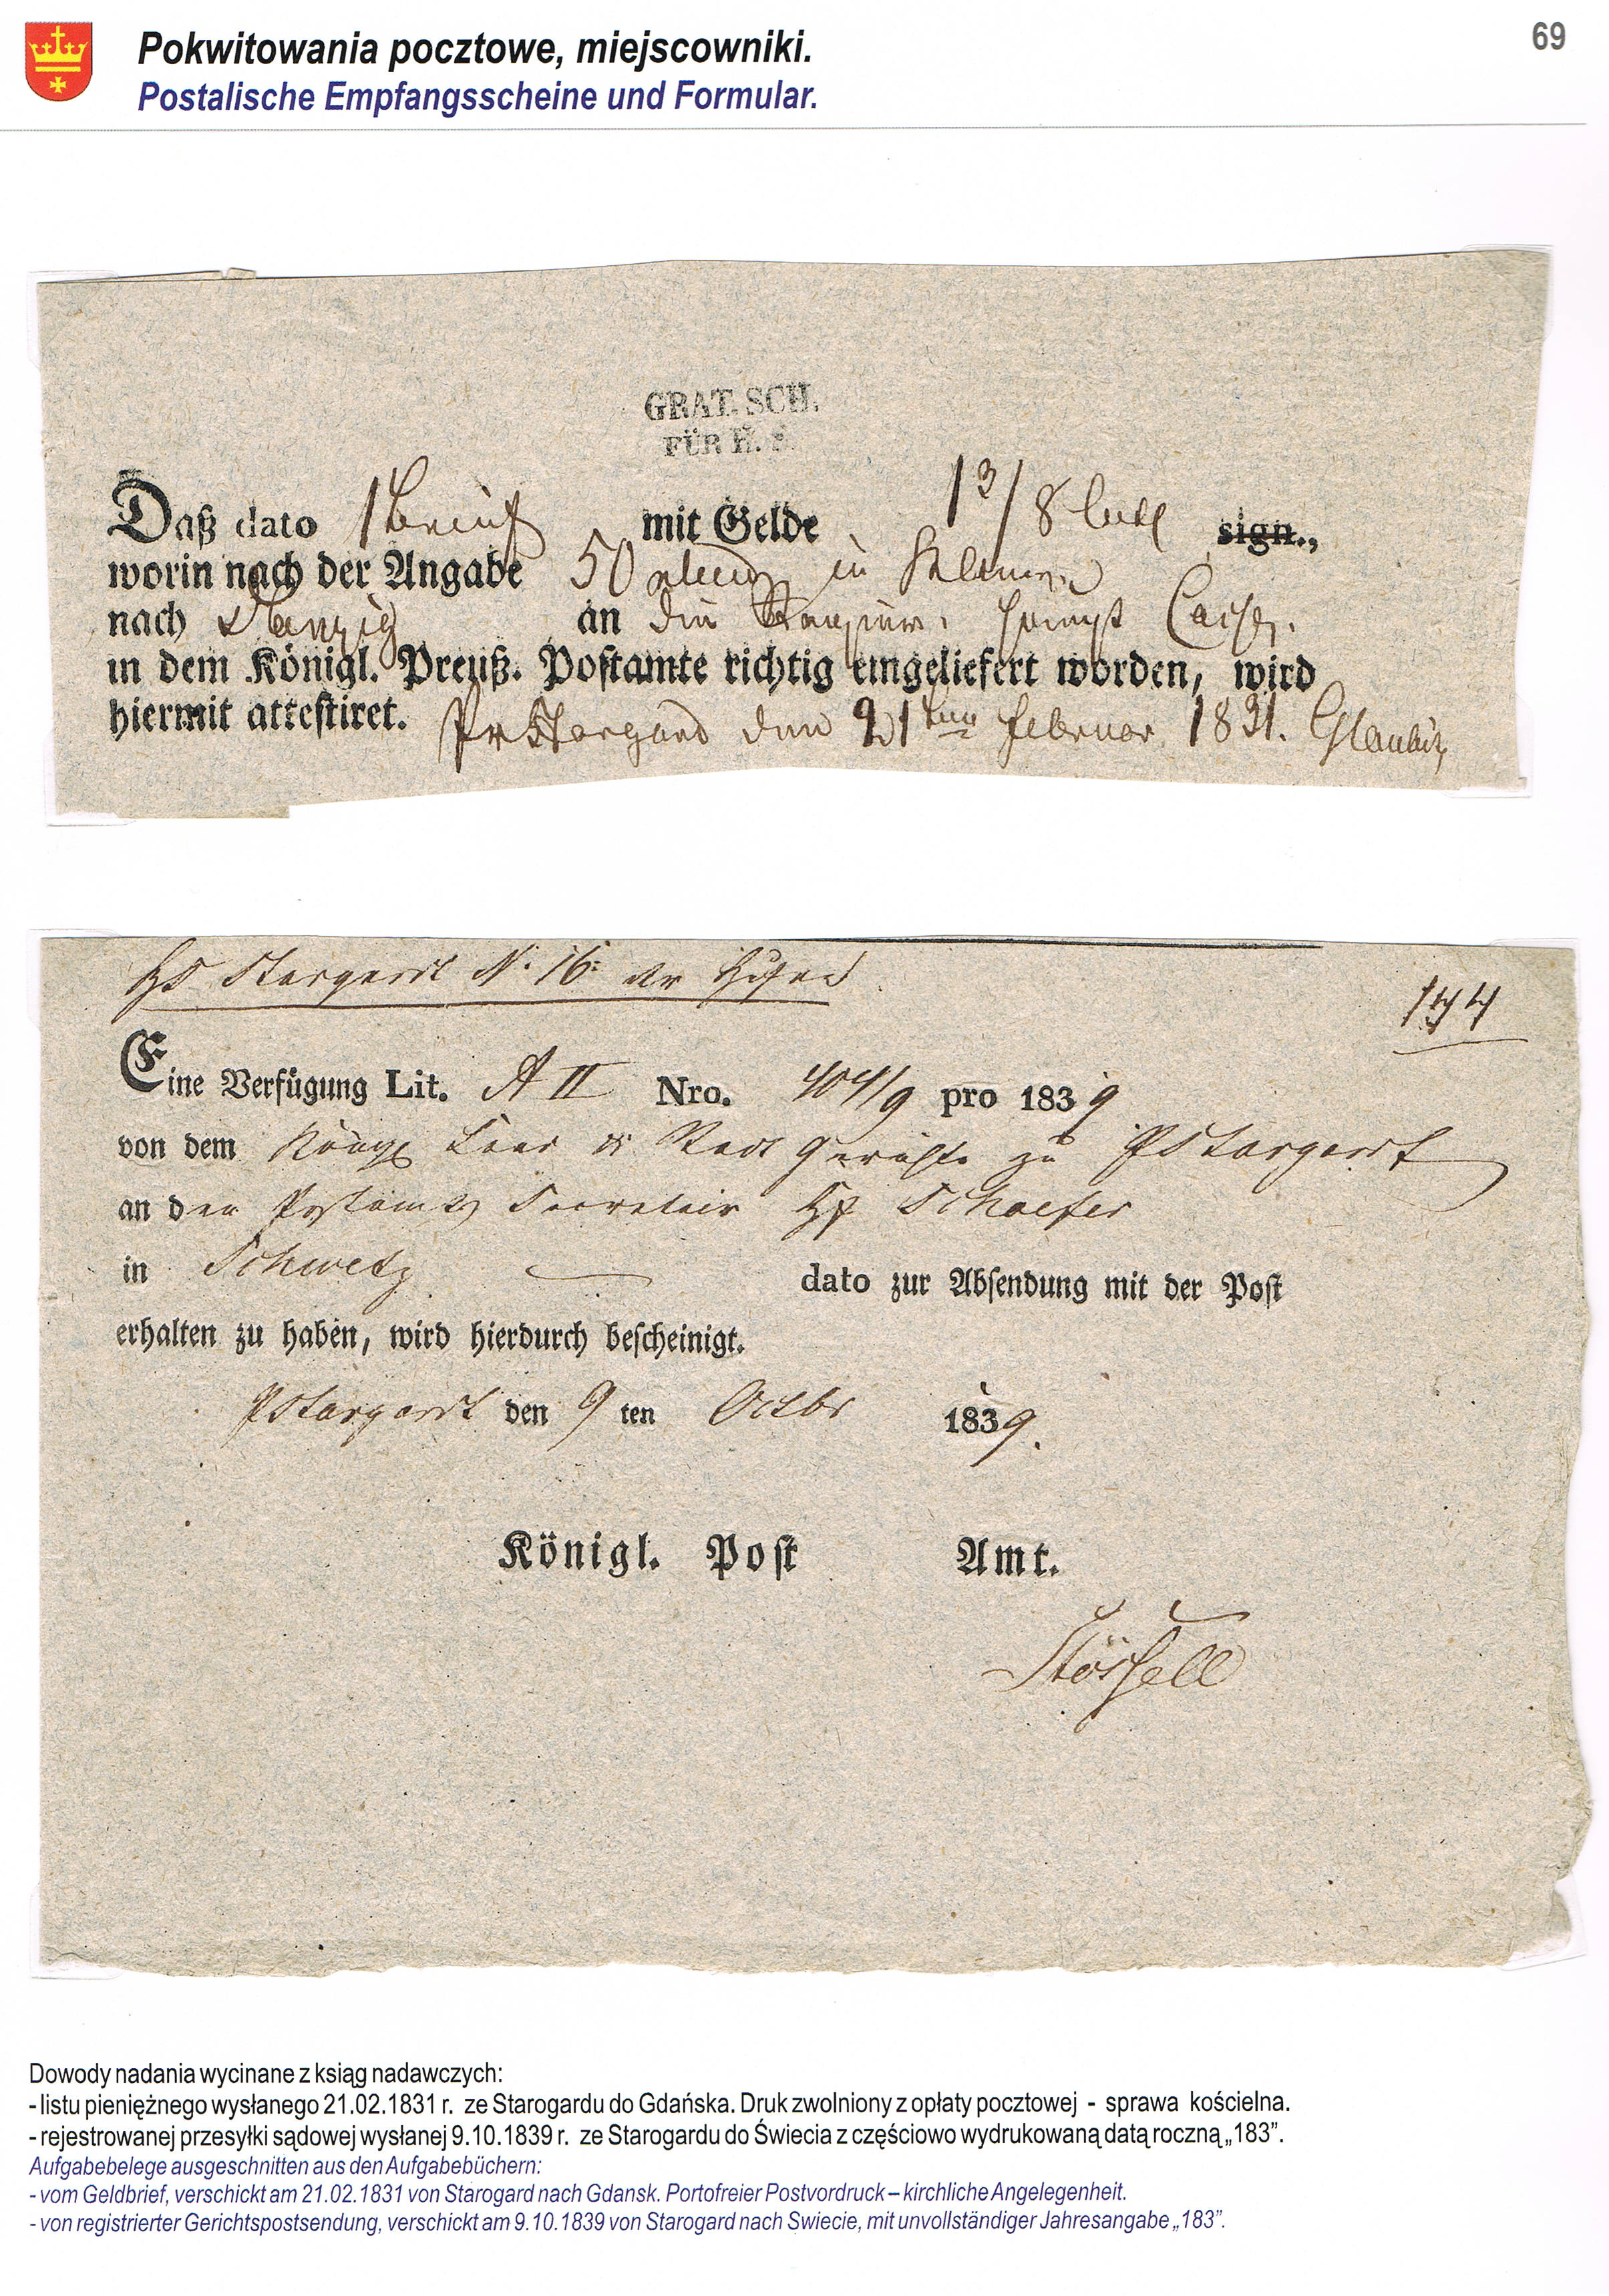 Pokwitowania pocztowe, miejscowniki.
69
Postalische Empfangsscheine und Formular.
GRAT. SCH.
FÜR H. S.
Daß dato 1 Brief mit Gelde 13/8 Loth sign.,
worin nach der Angabe 50 in
nach Danzig an die Haupt Casse.
in dem Königl. Preuß. Postamte richtig eingeliefert worden, wird
hiermit attestiret. Pr Stargard den 21ten Februar 1831.
Stargardt N. 16.
144
Eine Verfügung Lit. A II Nro. 404/9 pro 1839
von dem Königl Land & Stadt Gerichte zu PStargardt
an den Postamts Secretair H Schaefer
in Schwetz dato zur Absendung mit der Post
erhalten zu haben, wird hierdurch bescheinigt.
PStargardt den 9 ten Octbr 1839.
Königl. Post Amt.
Stössell
Dowody nadania wycinane z ksiąg nadawczych:
- listu pieniężnego wysłanego 21.02.1831 r. ze Starogardu do Gdańska. Druk zwolniony z opłaty pocztowej - sprawa kościelna.
- rejestrowanej przesyłki sądowej wysłanej 9.10.1839 r. ze Starogardu do Świecia z częściowo wydrukowaną datą roczną „183”.
Aufgabebelege ausgeschnitten aus den Aufgabebüchern:
- vom Geldbrief, verschickt am 21.02.1831 von Starogard nach Gdansk. Portofreier Postvordruck – kirchliche Angelegenheit.
- von registrierter Gerichtspostsendung, verschickt am 9.10.1839 von Starogard nach Swiecie, mit unvollständiger Jahresangabe „183”.